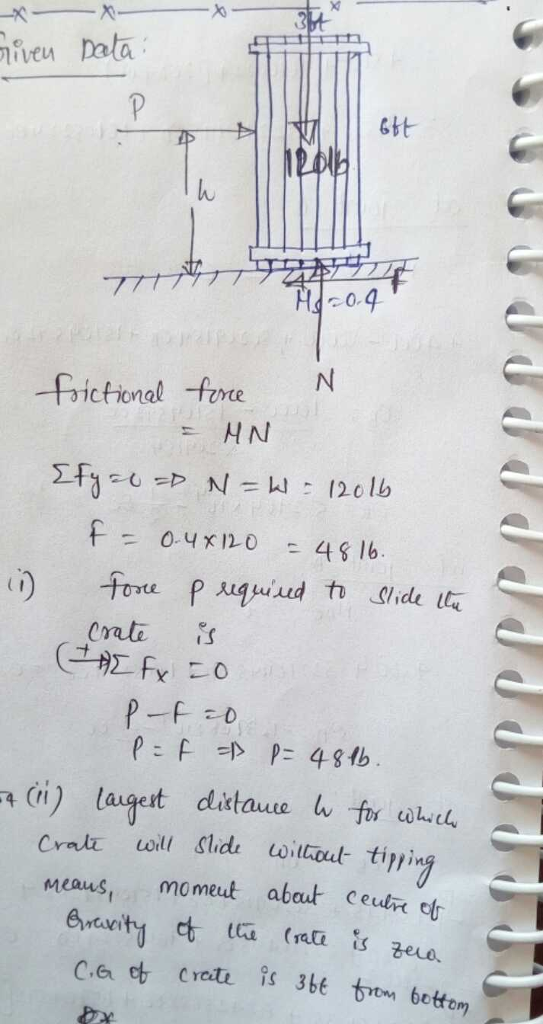 3ft
Given Data:
P
6ft
120lb
h
F
μs = 0.4
N
frictional force
= μN
ΣFy = 0 ⇒ N = W = 120 lb
f = 0.4 x 120 = 48 lb.
(i) force P required to slide the
crate is
(→+) Σ Fx = 0
P - F = 0
P = F ⇒ P = 48 lb.
(ii) largest distance h for which
crate will slide without tipping
means, moment about centre of
Gravity of the crate is zero.
C.G of crate is 3ft from bottom